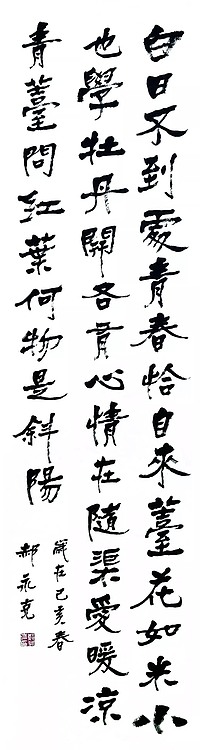 白日不到處青春恰自來薹花如米小
也學牡丹開各有心情在隨渠愛暖涼
青薹問紅葉何物是斜陽
歲在己亥春
郝永亮